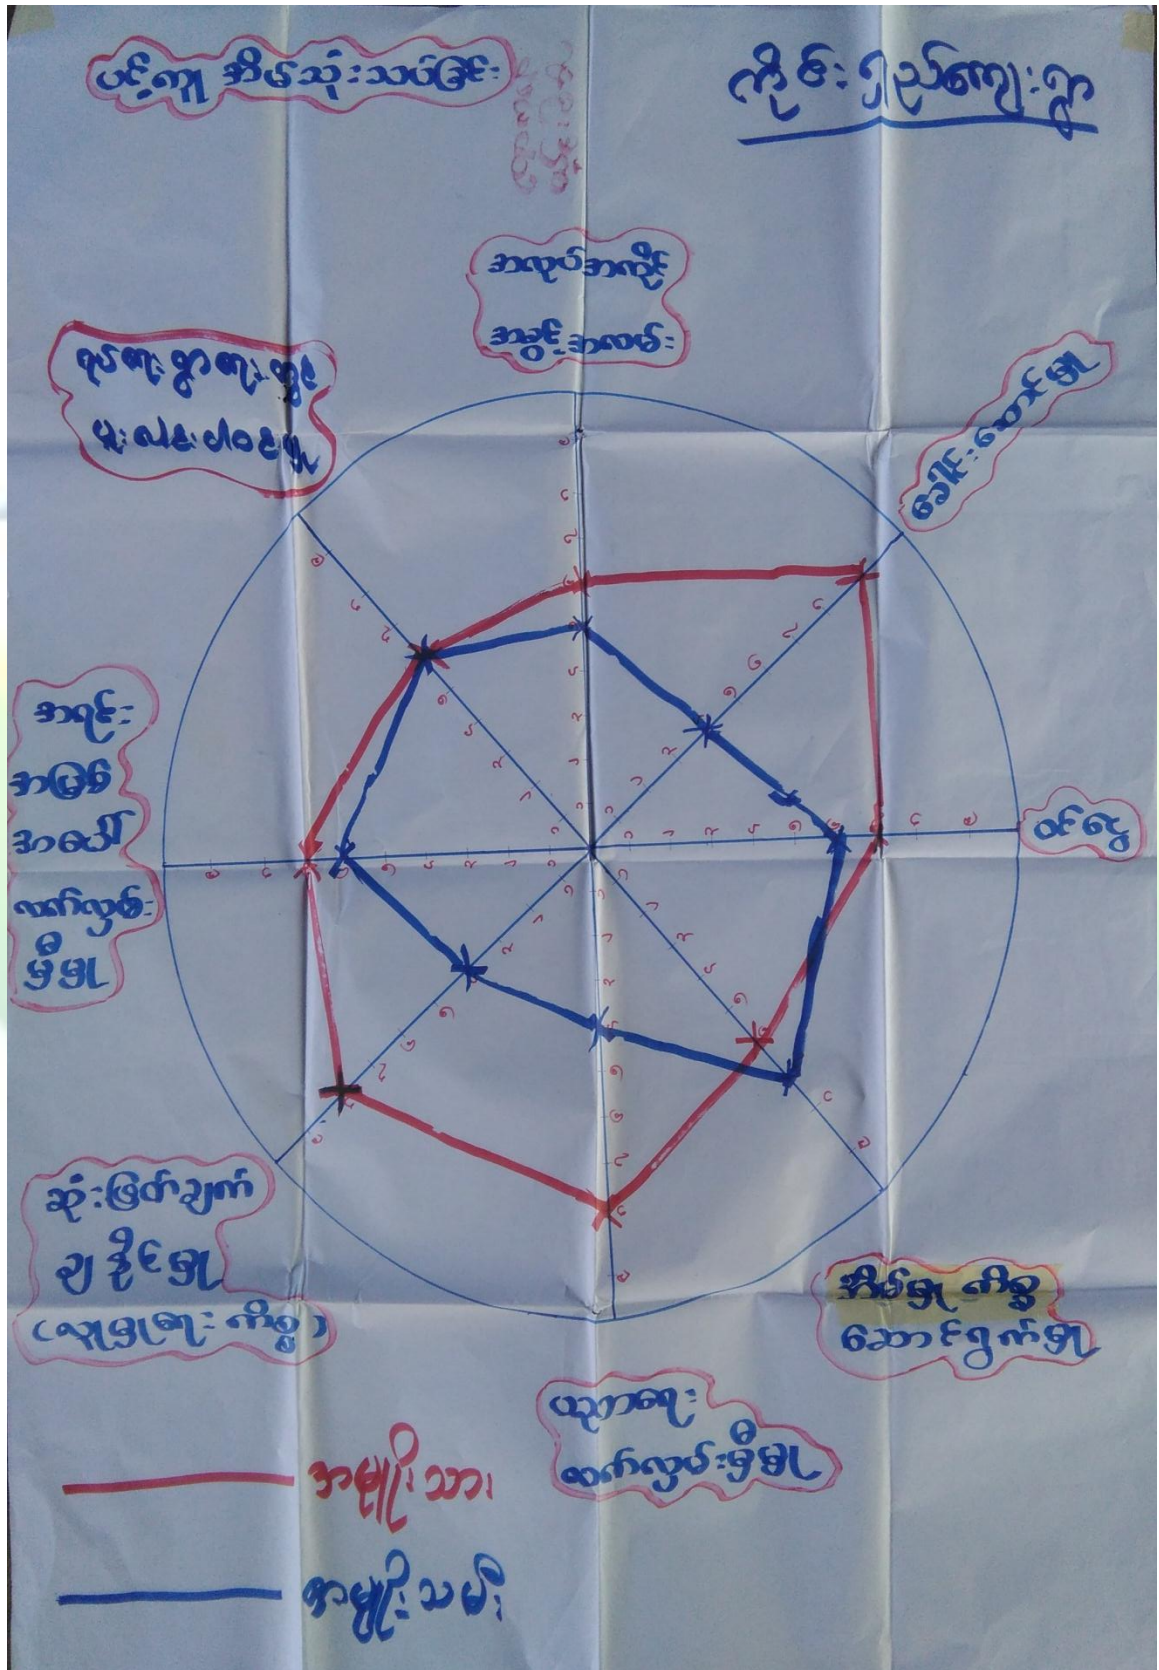 ပင့်ကူ အိမ်သုံးသပ်ခြင်း
ကိုင်းရှည်ကျေးရွာ
အလုပ်အကိုင်
အခွင့်အလမ်း
ရပ်ရေး ရွာရေး တွင်
ပူးပေါင်းပါဝင်မှု
ခေါင်းဆောင်မှု
အရင်း
အမြစ်
အပေါ်
လက်လှမ်း
မှီမှု
ဝင်ငွေ
ဆုံးဖြတ်ချက်
ချ နိုင်မှု
(လူမှုရေး ကိစ္စ)
အိမ်မှု ကိစ္စ
ဆောင်ရွက်မှု
ပညာရေး
လက်လှမ်းမှီမှု
အမျိုးသား
အမျိုးသမီး